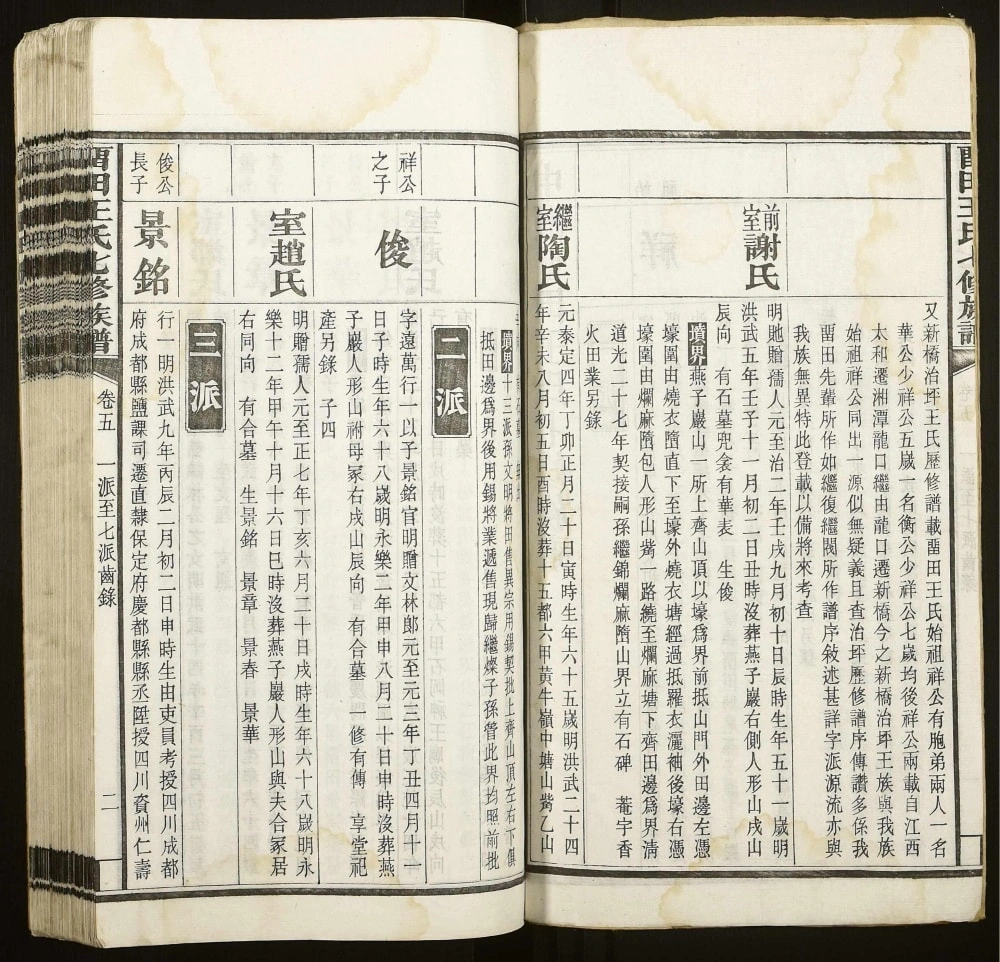 畱田王氏七修族譜
又新橋治坪王氏歷修譜載畱田王氏始祖祥公有胞弟兩人一名
華公少祥公五嵗一名衡公少祥公七歲均後祥公兩載自江西
太和遷湘潭龍口繼由龍口遷新橋今之新橋治坪王族與我族
始祖祥公同出一源似無疑義且查治坪歷修譜序傳讚多係我
畱田先輩所作如繼復繼閣所作譜序敍述甚詳字派源流亦與
我族無異特此登載以備將來考查
前室謝氏
明貤贈孺人元至治二年壬戌九月初十日辰時生年五十一嵗明
洪武五年壬子十一月初二日丑時沒葬燕子巖右側人形山戌山
辰向 有石墓兜衾有華表 生俊
墳界燕子巖山一所上齊山頂以壕爲界前抵山門外田邊左憑
壕圍由燒衣隋直下至壕外燒衣塘經過抵羅衣灑袖後壕右憑
壕圍由爛麻隋包人形山觜一路繞至爛麻塘下齊田邊爲界清
道光二十七年契接嗣孫繼錦爛麻隋山界立有石碑 菴宇香
火田業另錄
繼室陶氏
元泰定四年丁卯正月二十日寅時生年六十五嵗明洪武二十四
年辛未八月初五日酉時沒葬十五都六甲黃牛嶺中塘山觜乙山
墳界十三派孫文明將田售異宗用錫契批上齊山頂左右下俱
抵田邊爲界後用錫將業遞售現歸繼燦子孫管此界均照前批
二派
祥公之子
俊
字遠萬行一以子景銘官明贈文林郎元至元三年丁丑四月十一
日子時生年六十八嵗明永樂二年甲申八月二十日申時沒葬燕
子巖人形山祔母冢右戌山辰向 有合墓 一修有傳 享堂祀
產另錄 子四
室趙氏
明贈孺人元至正七年丁亥六月二十日戌時生年六十八嵗明永
樂十二年甲午十月十六日巳時沒葬燕子巖人形山與夫合冢居
右同向 有合墓 生景銘 景章 景春 景華
三派
俊公長子
景銘
行一明洪武九年丙辰二月初二日申時生由吏員考授四川成都
府成都縣鹽課司遷直隸保定府慶都縣縣丞陞授四川資州仁壽
畱田王氏七修族譜
卷五 一派至七派齒錄
二